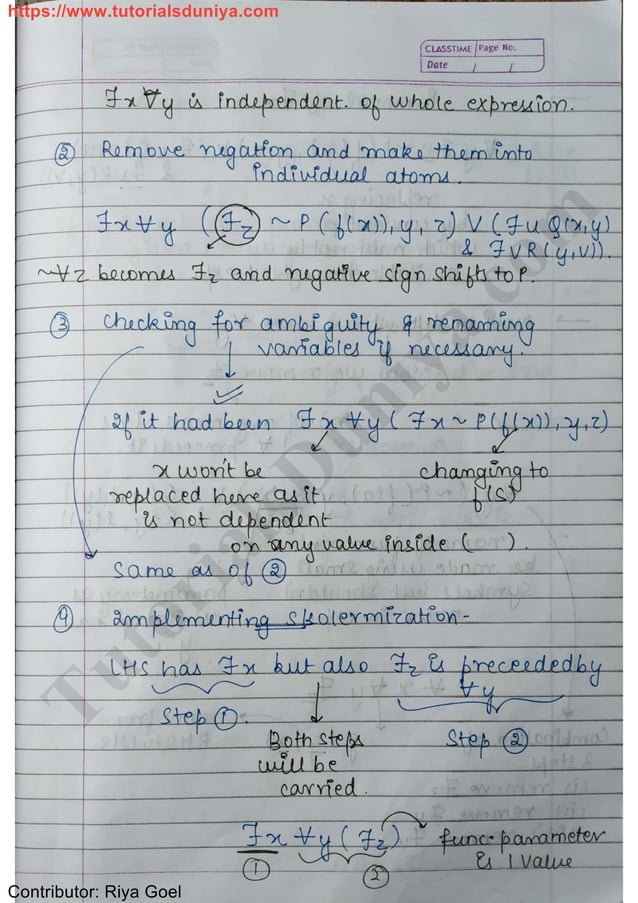 https://www.tutorialsduniya.com
CLASSTIME Page No.
Date / /
∃x ∀y is independent. of whole expression.
② Remove negation and make them into
individual atoms.
∃x ∀y (∃z ~ P(f(x)), y, z) V (∃u Q(x,y)
& ∃V R(y,V)).
~∀z becomes ∃z and negative sign shifts to P.
③ Checking for ambiguity & renaming
variables if necessary.
If it had been ∃x ∀y (∃x ~ P(f(x)), y, z)
x won't be changing to
replaced here as it f(s)
is not dependent
on any value inside ( ).
Same as of ②
④ Implementing skolermization-
LHS has ∃x but also ∃z is preceeded by
∀y
Step ①. Both steps Step ②
will be
carried.
∃x ∀y (∃z) func. parameter
① ② is 1 value
TutorialsDuniya.com
Contributor: Riya Goel